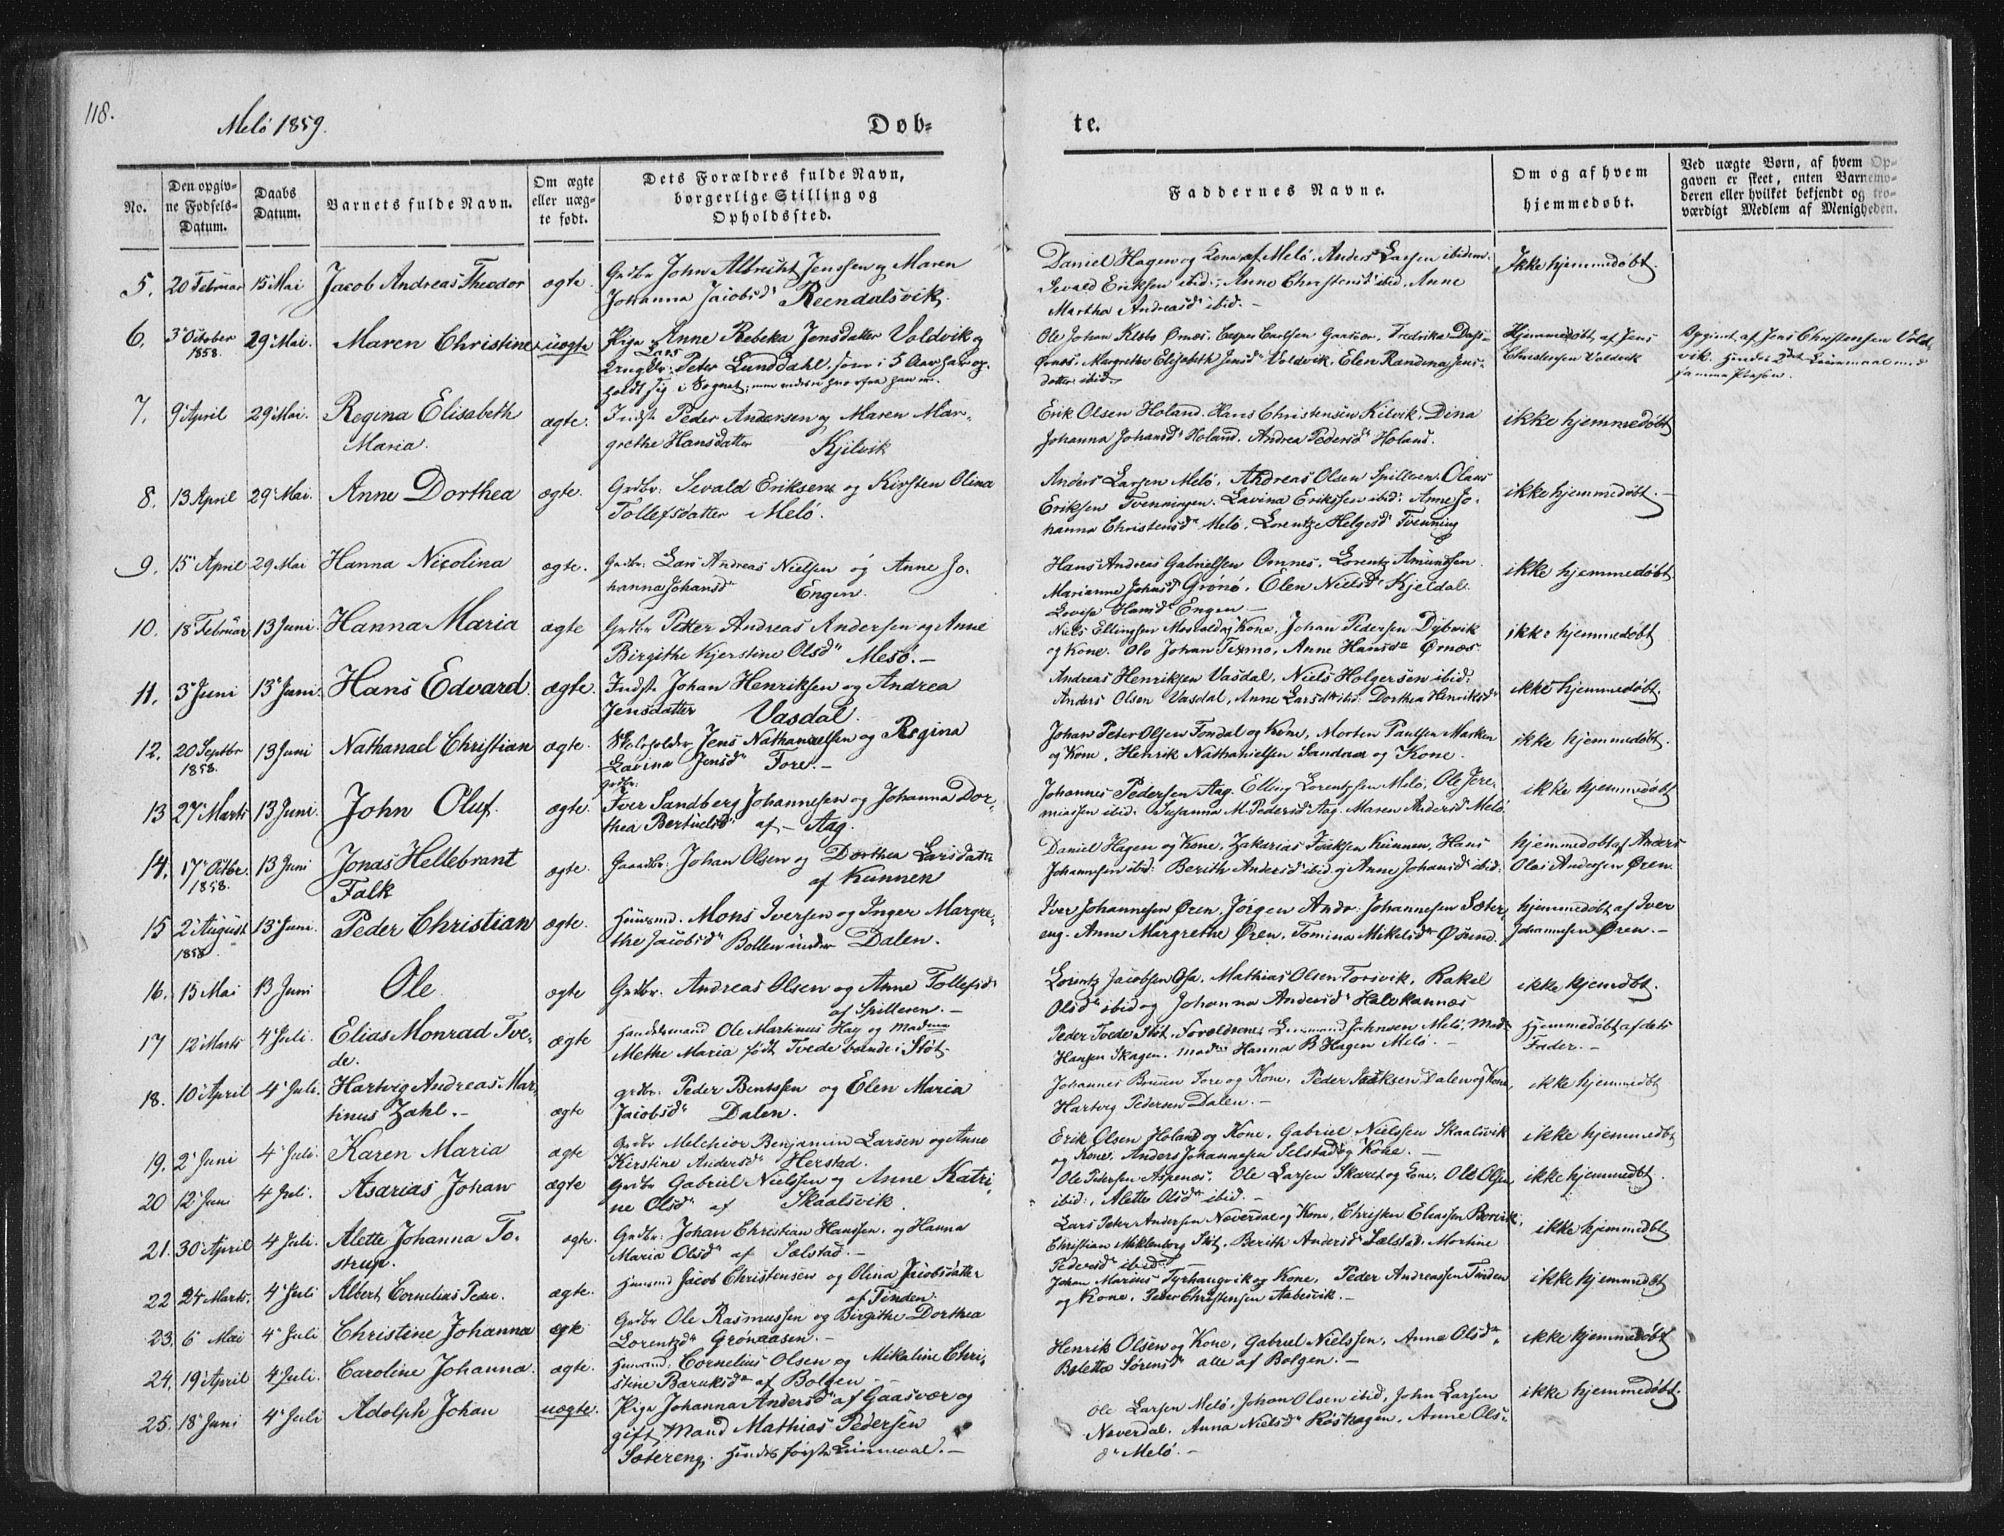 118.
Melö 1859.
Døb-
te.
No.
Den opgiv-
ne Fødsels-
Datum.
Daabs
Datum.
Barnets fulde Navn.
Om ægte
eller uæg-
te født.
Dets Forældres fulde Navn,
borgerlige Stilling og
Opholdssted.
Faddernes Navne.
Om og af hvem
hjemmedøbt.
Ved uægte Børn, af hvem Op-
gaven er skeet, enten Barnemo-
deren eller hvilket bekjendt og tro-
værdigt Medlem af Menigheden.
5. 20 Februar 15 Mai Jacob Andreas Theodor ægte. Grdbr John Albrecht Jenssen og Maren
Johanna Jacobsd Reendalsvik.
Daniel Hagen og Kone af Melö. Anders Larsen ibidem.
Sevald Eriksen ibid:, Anne Christensd ibid, Anne
Martha Andreasd ibid. –
Ikke hjemmedöbt.
6. 3 October 1858. 29 Mai. Maren Christine uægte Pige Anne Rebeka Jensdatter Valdvik og
Ungkr: Lars Peter Lunddahl, som i 5 Aar har op-
holdt sig i Sognet,
Ole Johan Ørnæs. Casper Carlsen Gaasvær. Fredrikke
Ørnæs. Margrethe Elisabeth Jensd Valdvik, Elen Randina Jens-
datter ibid.
Hjemmedöbt af Jens
Christensen Valdvik
Opgivet af Jens Christensen Vald-
vik. Hendes 2det Leiermaal med
samme Person.
7. 9 April 29 Mai. Regina Elisabeth
Maria. ægte. Indst Peder Andersen og Maren Mar-
grethe Hansdatter Kjilvik
Erik Olsen Holand. Hans Christensen Kilvik, Dina
Johanna Johansd Holand. Andrea Pedersd Holand.
ikke hjemmedöbt
8. 13 April 29 Mai. Anne Dorthea ægte. Grdbr: Sevald Eriksen og Kirsten Olina
Tollefsdatter Melö.
Anders Larsen Melö, Andreas Olsen Spilderen. Olaus
Eriksen Tvenningen. Lavina Erikssen ibid: Anne Jo-
hanna Christensd Melö, Lorentze Helgesd Tvenning
ikke hjemmedöbt. –
9. 15 April 29 Mai Hanna Nicolina ægte. Grdbr: Lars Andreas Nielsen og Anne Jo-
hanna Johansd Engen.
Hans Andreas Gabrielsen Omnes, Lorentz Amundsen
Marianne Johansd Grönö, Elen Nielsd Kjeldal
Lovise Hansd Engen –
ikke hjemmedöbt
10. 18 Februar 13 Juni. Hanna Maria ægte Grdbr Peter Andreas Andersen og Anne
Birgithe Kjerstine Olsd Mesö. –
Niels Ellingsen Mosvold og Kone, Johan Pedersen Dybvik
og Kone. Ole Johan Texmo, Anne Hansd Ørnæs
ikke hjemmedöbt
11. 3 Juni 13 Juni. Hans Edvard. ægte. Indst: Johan Henriksen og Andrea
Jensdatter Vasdal.
Andreas Henriksen Vasdal, Niels Holgersen ibid:
Anders Olsen Vasdal, Anne Larsd ibid: Dorthea Henriksd
ikke hjemmedöbt.
12. 20 Septbr 1858. 13 Juni Nathanael Christian ægte. Skoleholder Jens Nathanaelsen og Regina
Lavina Jensd Fore. –
Johan Peter Olsen Fondal og Kone, Morten Paulsen Marken
og Kone, Henrik Nathanielsen Sandaa og Kone
ikke hjemmedöbt.
13 27 Marts 13 Juni. John Oluf. ægte. Grdbr: Iver Sandberg Johannesen og Johanna Dor-
thea Bertheusd af – Aag.
Johannes Pedersen Aag. Elling Lorentzen Melö, Ole Jere-
miassen ibid. Susanna M. Pedersd Aag. Maren Andersd Melö.
ikke hjemmedöbt
14. 17 Octbr. 1858. 13 Juni Jonas Hellebrant
Falk ægte. Gaardbr: Johan Olsen og Dorthea Larsdatter
af Kunnen
Daniel Hagen og Kone, Zakarias Isaksen Kunnen, Hans
Johannesen ibid: Berith Andersd ibid og Anne Johansd ibid:
hjemmedöbt af Anders
Olai Andersen Øren.
15 2 August 1858. 13 Juni. Peder Christian ægte. Huusmd. Mons Iversen og Inger Margre-
the Jacobsd Bollen under Dalen.
Iver Johannesen Øren, Jörgen Andr: Johannesen Sæter-
eng. Anne Margrethe Øren. Tomina Mikelsd Øsund.
hjemmedöbt af Iver
Johannesen Øren. –
16. 15 Mai 13 Juni Ole ægte Grdbr. Andreas Olsen og Anne Tollefsd
af Spilderen. –
Lorentz Jacobsen Osa. Mathias Olsen Torsvik, Rakel
Olsd ibid og Johanna Andersd Halekannæs
ikke hjemdöbt.
17 12 Marts 4 Juli. Elias Monrad Tve-
de. ægte Handelsmand Ole Martinus Hay og Madme
Methe Maria født Tvede boende i Stöt.
Peder Tvede Stöt, Lensmand Johnsen Melö, Mad
Hansen Skagen. Mad: Hanna B Hagen Melö. –
Hjemmedöbt af dets
Fader. –
18. 10 April 4 Juli. Hartvig Andreas Mar-
tinus Zahl. – ægte grdbr. Peder Bentssen og Elen Maria
Jacobsd Dalen.
Johannes Bruun Fore og Kone, Peder Isaksen Dalen og Kone,
Hartvig Pedersen Dalen. –
ikke hjemmedöbt
19. 2 Juni 4 Juli. Karen Maria ægte Grdbr Melchior Benjamin Larsen og Anne
Kirstine Andersd Herstad.
Erik Olsen Holand og Kone, Gabriel Nielssen Skaalsvik
og Kone. Anders Johannesen Selstad og Kone. –
ikke hjemmedöbt
20 12 Juni 4 Juli. Asarias Johan ægte Grdbr Gabriel Nielssen og Anne Katri-
ne Olsd af Skaalsvik.
Ole Pedersen Aspenæs. Ole Larsen Skaret og Kone, Ole Olsen
ibid:, Alette Olsd ibid. –
ikke hjemmedöbt.
21. 30 April 4 Juli. Alette Johanna To-
strup. ægte. Grdbr: Johan Christian Hanssen. og Hanna
Maria Olsd af Sælstad. –
Lars Peter Andersen Neverdal og Kone, Christen Eliassen Borvik,
Christian Miklenborg Stöt, Berith Andersd Sælstad. Martine
Pedersd ibid: –
ikke hjemmedöbt
22 24 Marts. 4 Juli Albert Cornelius Peder. ægte. Huusmd Jacob Christensen og Olina Jacobsdatter
af Tinden.
Johan Marius Tyrhaugvik og Kone. Peder Andreassen Tinden
og Kone, Peter Christensen Aabesvik. –
ikke hjemmedöbt
23. 6 Mai 4 Juli Christine Johanna ægte Grdbr Ole Rasmussen og Birgithe Dorthea
Lorentzd Grönaasen. –
Henrik Olsen og Kone, Gabriel Nielssen, Anne Olsd,
Beletta Sörensd alle af Bolgen. –
ikke hjemmedöbt
24. 19 April 4 Juli. Caroline Johanna. ægte. Huusmd: Cornelius Olsen og Mikaline Chri-
stine Baruksd af Bolgen –
ikke hjemmedöbt.
25. 18 Juni 4 Juli Adolph Johan uægte. Pige Johanna Andersd af Gaasvær og
gift Mand Mathias Pedersen
Sætereng. Hendes förste Leiermaal. –
Ole Larsen Melö, Johan Olsen ibid, John Larsen
Neverdal. Anna Nielsd Röshagen, Anne Ols-
d Melö. –